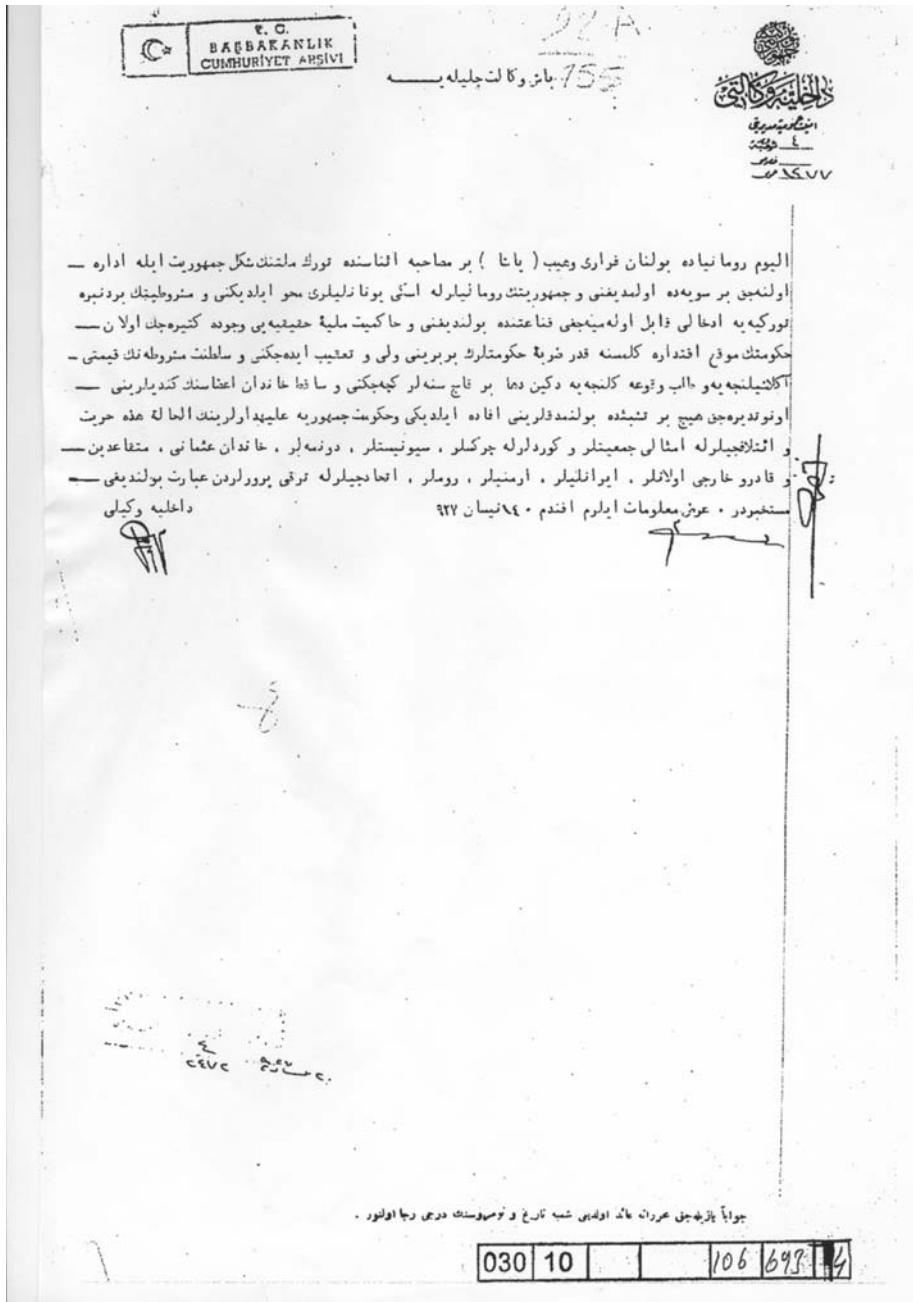 T. C.
BAŞBAKANLIK
CUMHURİYET ARŞİVİ
22 A
155
باش وكالت جليله يه
داخليه وكالتى
امنيت عموميه مديريتى
٤ شعبه
١٤٧٧
اليوم رومانياده بولنان فرارى وهيب ( پاشا ) بر مصاحبه اثناسنده تورك ملتنك شكل جمهوريت ايله اداره —
اولنه جق بر سويه ده اولمديغنى و جمهوريتك رومانيلرله اسكى يونانليلرى محو ايلديكنى و مشروطيتك بردنبره
توركيه يه ادخالى قابل اوله ميه جغى قناعتنده بولنديغنى و حاكميت مليهٔ حقيقيه يى وجوده كتيره جك اولان —
حكومتك موقع اقتداره كلمسنه قدر ضربهٔ حكومتلرك بربرينى ولى و تعقيب ايده جكنى و سلطنت مشروطه نك قيمتى —
آكلاشيلنجه يه و طلب وقوعه كلنجه يه دكين دها بر قاچ سنه لر كچه جكنى و ساقط خاندان اعضاسنك كنديلرينى —
اونوتديره جق هيچ بر تشبثده بولنمدقلرينى افاده ايلديكى وحكومت جمهوريه عليهدارلرينك الحالة هذه حريت
و ائتلافجيلرله امثالى جمعيتلر و كوردلرله چركسلر ، سيونيستلر ، دونمه لر ، خاندان عثمانى ، متقاعدين —
و قادرو خارجى اولانلر ، ايرانليلر ، ارمنيلر ، روملر ، اتحادجيلرله ترقى پرورلردن عبارت بولنديغى —
مستخبردر ٠ عرض معلومات ايلرم افندم ٠ ١٤ نيسان ٩٢٧
داخليه وكيلى
٤
٢٤٧٢
جواباً يازيله جق محرراته عائد اولديغى شعبه تاريخ و نومروسنك درجى رجا اولنور .
030 10 106 693 4